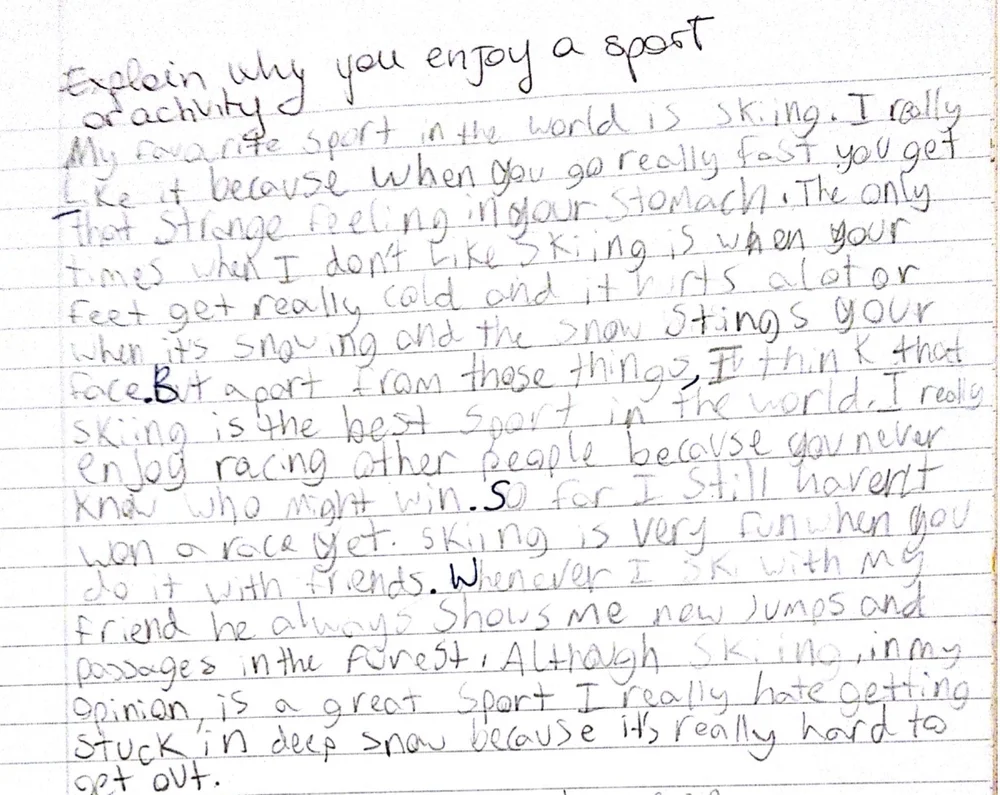 Explain why you enjoy a sport
or activity
My favarite sport in the world is skiing. I really
Like it because when you go really fast you get
that strange feeling in your stomach. The only
times when I don't Like skiing is when your
feet get really cold and it hirts alot or
when it's snowing and the snow stings your
face. But apart from those things, I think that
skiing is the best sport in the world. I really
enjoy racing other people because you never
know who might win. So far I still havent
won a race yet. skiing is very fun when you
do it with friends. Whenever I ski with my
friend he always shows me new jumps and
passages in the forest. Although skiing, in my
opinion, is a great sport I really hate getting
stuck in deep snow because it's really hard to
get out.